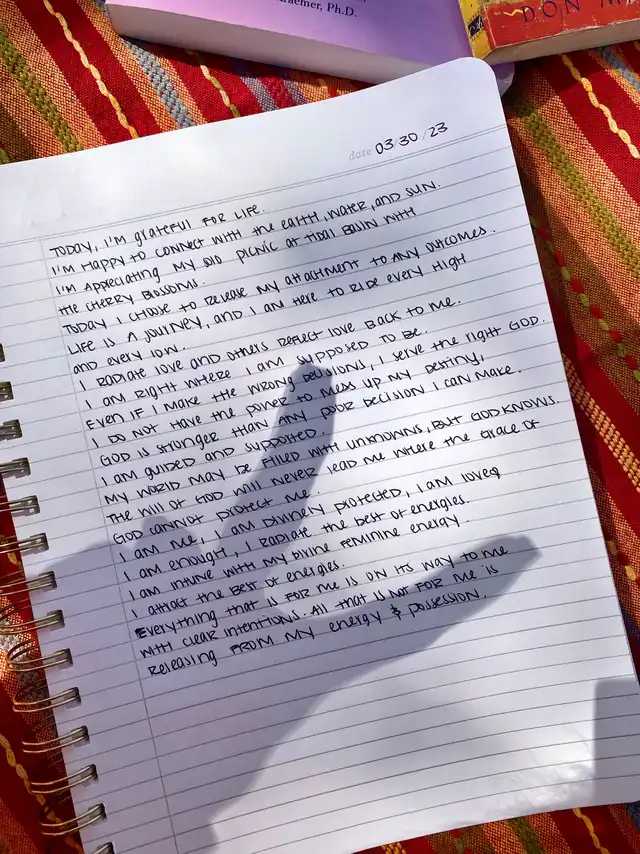 raemer, Ph.D.
DON M
date 03/30/23
TODAY, I'M grateful FOR LIFE.
I'M HAPPY to CONNECT with the earth, water, and SUN.
I'M APPRECIATING MY solo picnic at Tidal Basin with
the cherry blossoms.
TODAY I choose to release my attachment to any outcomes.
Life is a journey, and I am here to ride every high
and every low.
I radiate love and others reflect love back to me.
I am right where I am supposed to be.
Even if I make the wrong decisions, I serve the right GOD.
I do not have the power to mess up my destiny,
GOD is stronger than any poor decision I can make.
I am guided and supported.
My world may be filled with unknowns, but GOD knows.
The will of GOD will never lead me where the grace of
GOD cannot protect me.
I am me, I am divinely protected, I am loved
I am enough, I radiate the best of energies.
I am intune with my divine feminine energy.
I attract the best of energies.
Everything that is for me is on its way to me
with clear intentions. All that is not for me is
releasing from my energy & possession.